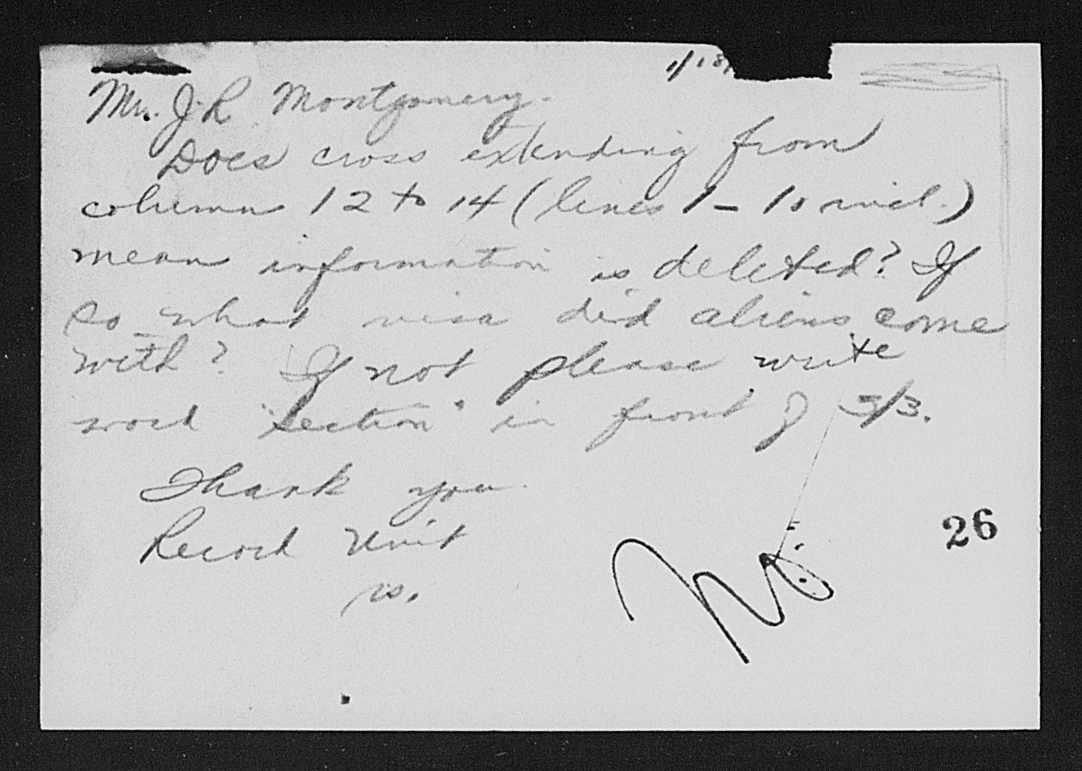 1/18/
Mr. J. R. Montgomery.
Does cross extending from
column 12 to 14 (lines 1 - 10 incl.)
mean information is deleted? If
so what visa did aliens come
with? If not please write
word "Section" in front of 3/3.
Thank you
Record Unit
26